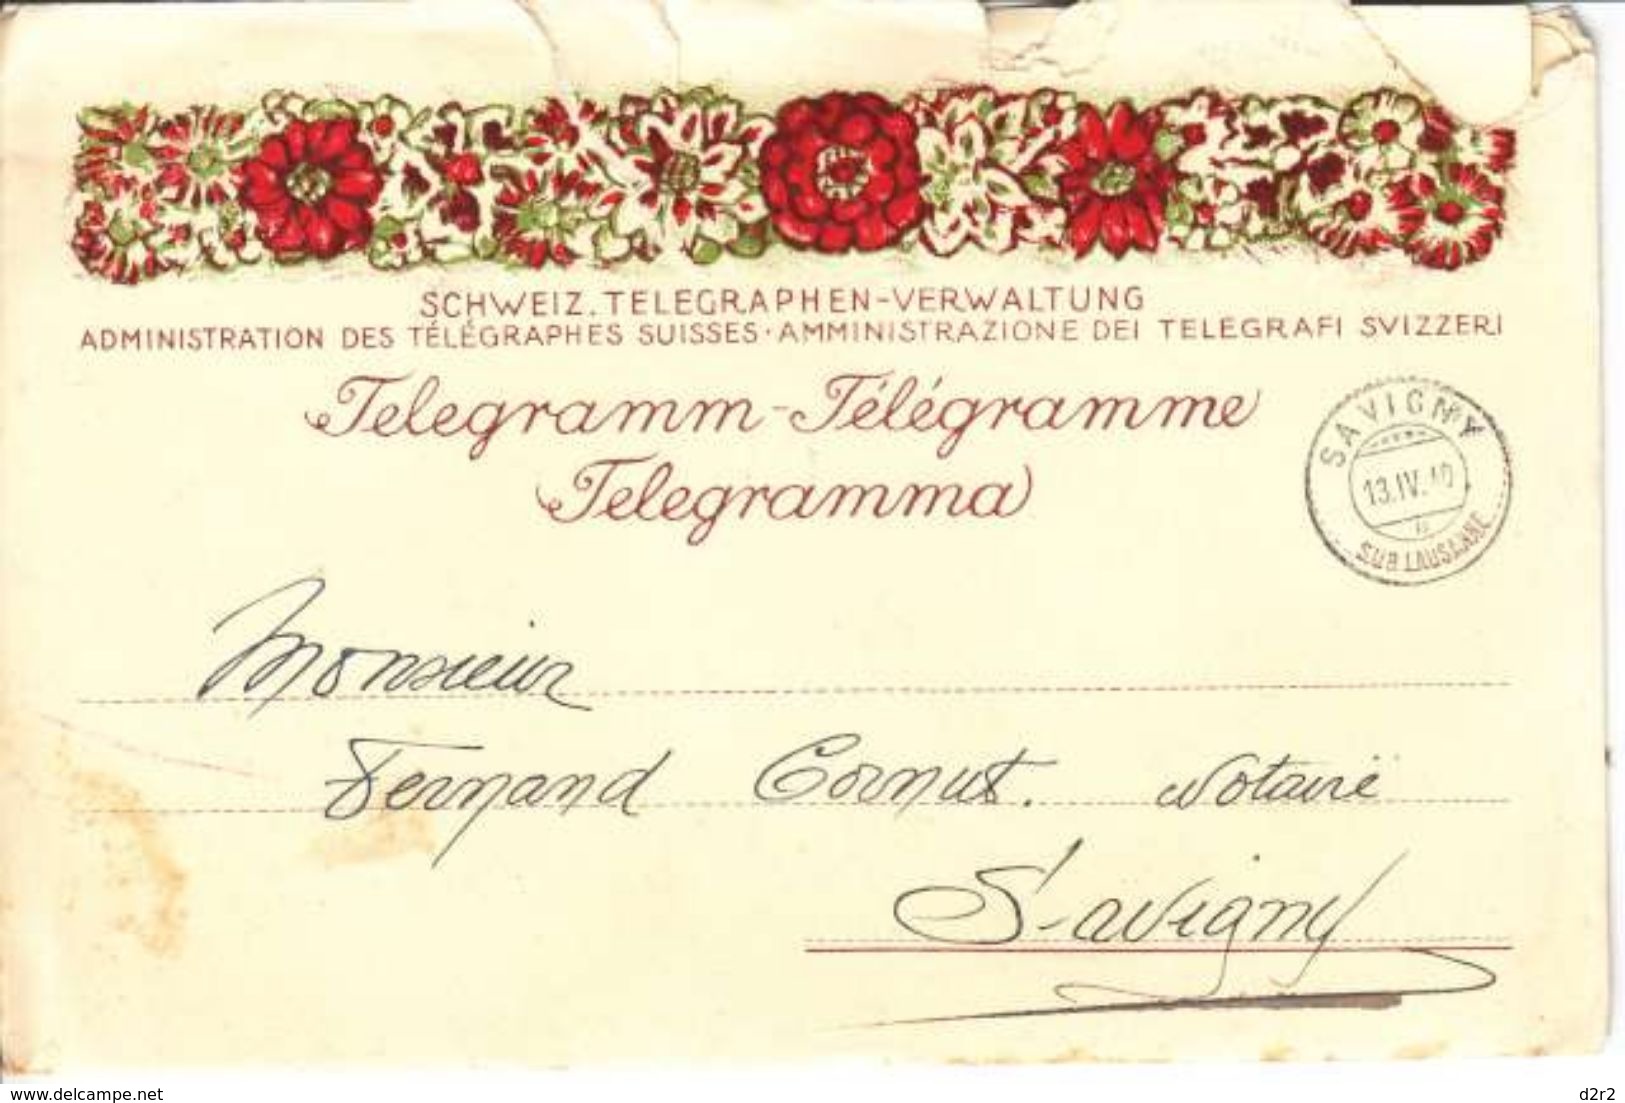 SCHWEIZ. TELEGRAPHEN-VERWALTUNG
ADMINISTRATION DES TÉLÉGRAPHES SUISSES · AMMINISTRAZIONE DEI TELEGRAFI SVIZZERI
Telegramm - Télégramme
Telegramma
SAVIGNY
13.IV.40
SUR LAUSANNE
Monsieur
Fernand Cornut. Notaire
Savigny
www.delcampe.net
d2r2